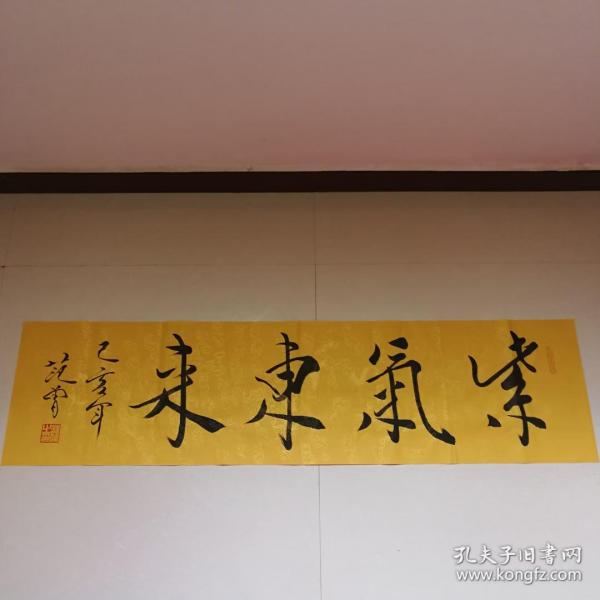 紫氣東来
己亥年
范曾
孔夫子旧书网
www.kongfz.com